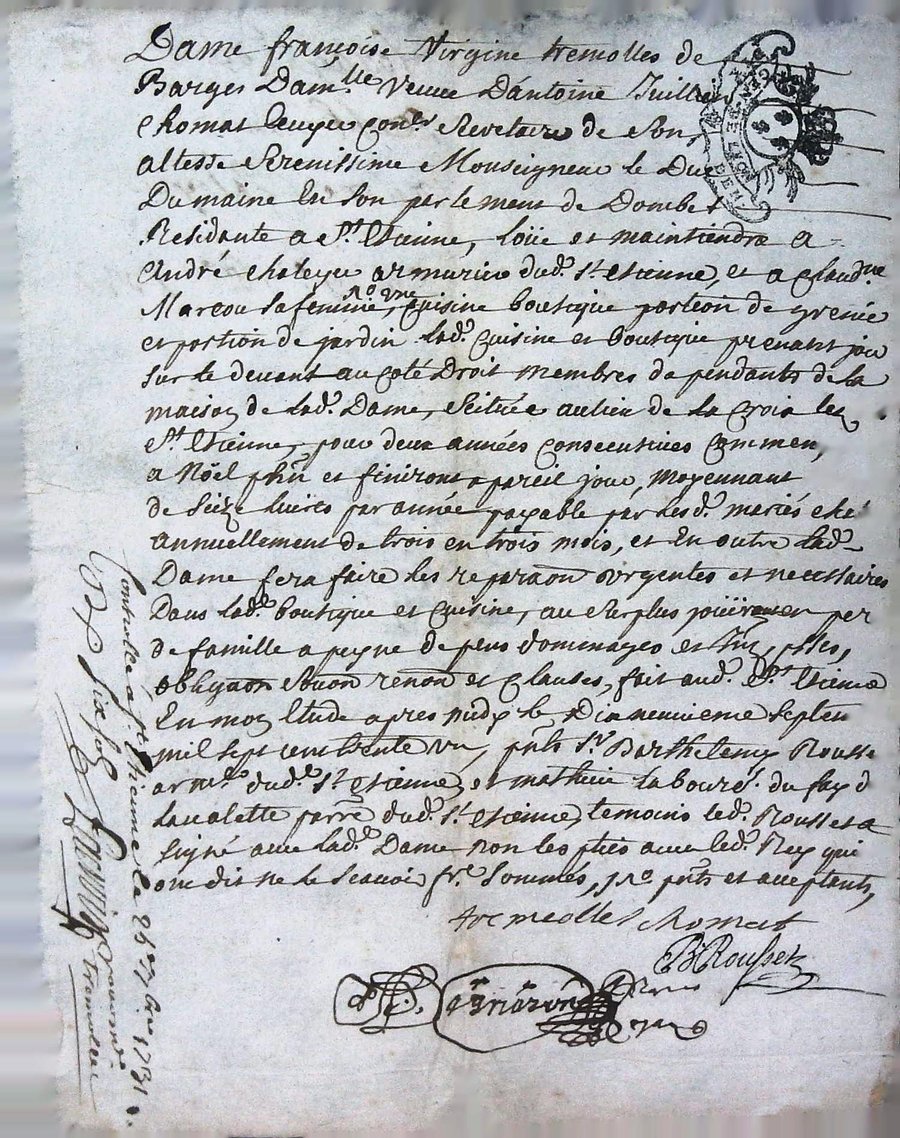 Dame françoise Virgine tremolles de
Barges Dam.lle Veuve D'antoine Juillien
Chomat Ecuyer Con.er Secretaire de Son
altesse Serenissime Monseigneur le Duc
Dumaine En Son parlement de Dombes
Residante a S.t Etienne, loüe et maintiendra a
André chaleyer armurier dud.t St etienne, et a Claud.ne
Marcou sa femme, cuisine boutique portion de grenie
et portion de jardin lad.e Cuisine et boutique prenant jour
sur le devant au coté Droit membres dependants de la
maison de lad.e Dame, Scituée au lieu de la Croix les
S.t Etienne, pour deux années Consecutives Commen,
a Noël et finiront a pareil jour, moyennant
de Seize livres par année payable par lesd.s mariés
annuellement de trois en trois mois, et En outre lad.e
Dame fera faire les reparaõn urgentes et necessaires
Dans lad.e boutique et Cuisine, au Surplus joüiront en per
de famille a peyne de tous dommages et
obligaõn renon et Clauses, fait aud.t S.t Etienne
En mon Etude apres midy le Dixneuvieme Septem
mil sept cent trente un, pnts S.r Barthelemy Rousse
arm.r dud.t S.t etienne et mathieu laboure du fay d
Lavalette parr.e dud.t S.t etienne, temoins led.t Rousset a
signé avec lad.e Dame non les pties avec led.t Rey qui
ont dit ne le Scavoir Sommés, pnts et acceptants,
tremeolles Chomat
B Rousset
Controllé a S.t Etienne le 26.e 7bre 1731
Six sols